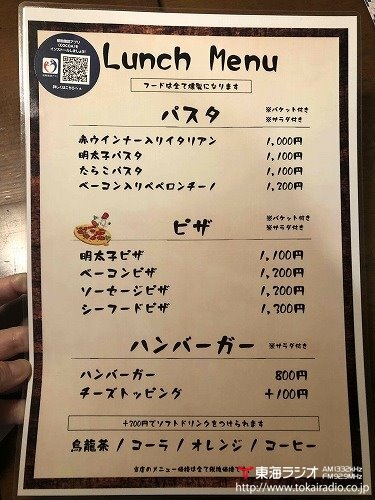 Lunch Menu
フードは全て燻製になります
パスタ
※バケット付き
※サラダ付き
赤ウインナー入りイタリアン 1,000円
明太子パスタ 1,100円
たらこパスタ 1,100円
ベーコン入りペペロンチーノ 1,200円
ピザ
※バケット付き
※サラダ付き
明太子ピザ 1,100円
ベーコンピザ 1,200円
ソーセージピザ 1,200円
シーフードピザ 1,300円
ハンバーガー ※サラダ付き
ハンバーガー 800円
チーズトッピング +100円
+200円でソフトドリンクをつけられます
烏龍茶 / コーラ / オレンジ / コーヒー
当店のメニュー価格は全て税抜価格で
東海ラジオ AM1332kHz FM92.9MHz
http://www.tokairadio.co.jp